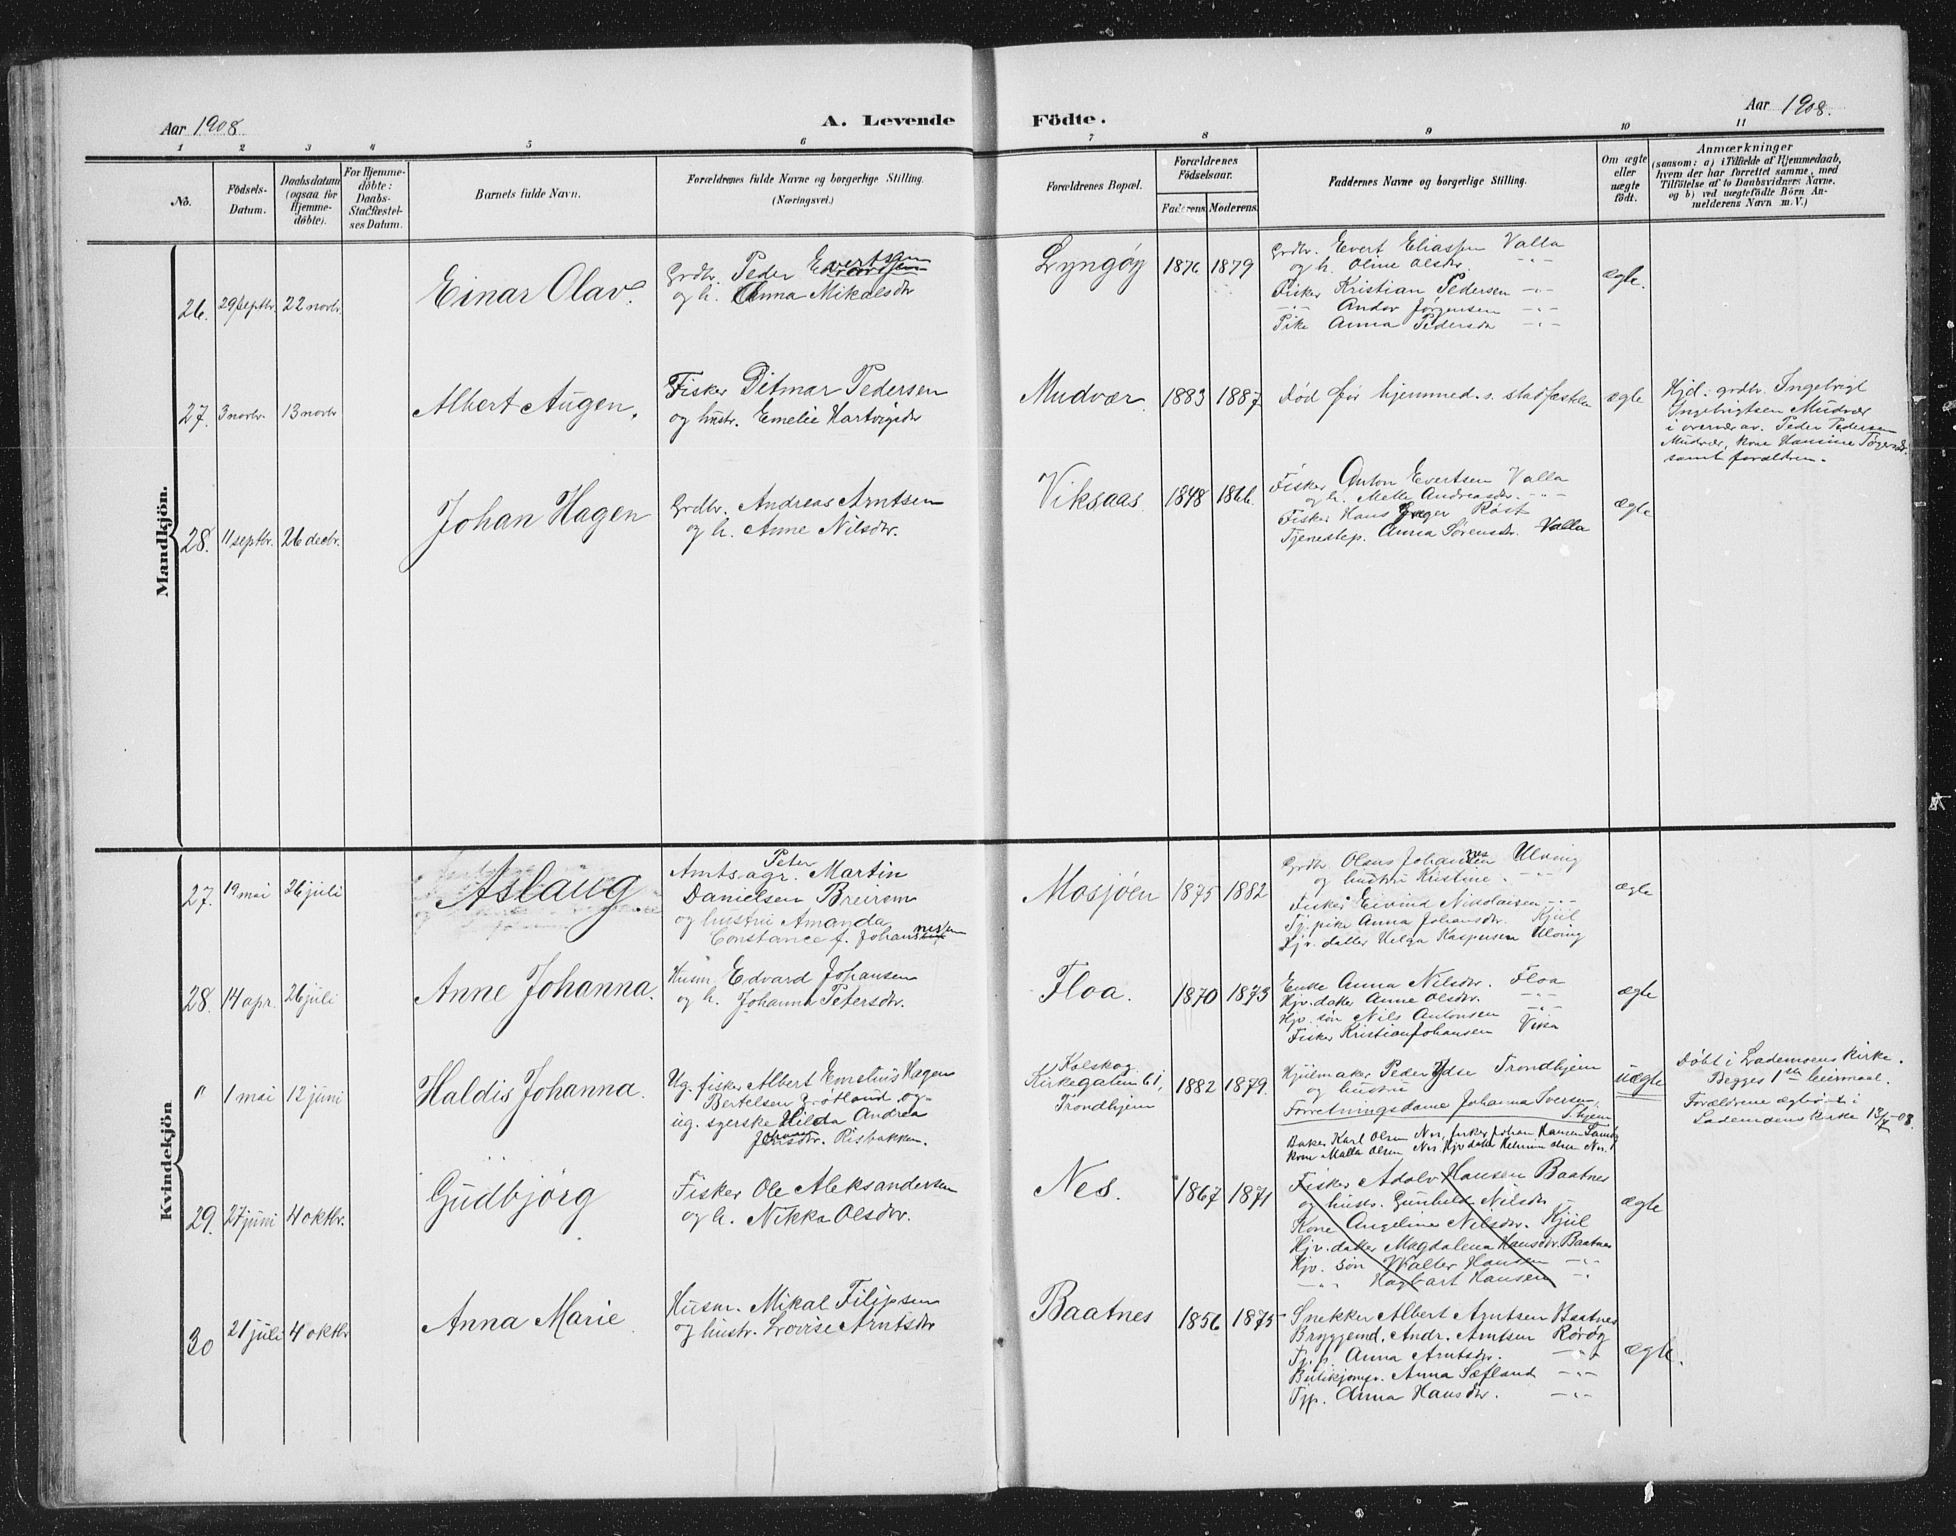 Aar 1908.
A. Levende Födte.
Aar 1908.
1 2 3 4 5 6 7 8 9 10 11
No.
Födsels-
Datum.
Daabsdatum
(ogsaa for
Hjemme-
döbte).
For Hjemme-
döbte:
Daabs-
Stadfæstel-
ses Datum.
Barnets fulde Navn.
Forældrenes fulde Navne og borgerlige Stilling.
(Næringsvei.)
Forældrenes Bopæl.
Forældrenes
Födselsaar.
Faderens Moderens.
Faddernes Navne og borgerlige Stilling.
Om ægte
eller
uægte
födt.
Anmærkninger
(saasom: a) i Tilfælde af Hjemmedaab,
hvem der har forrettet samme, med
Tilföielse af to Daabsvidners Navne.
og b) ved uægtefödte Börn An-
melderens Navn m. V.)
Mandkjön.
26. 29 septbr. 22 novbr.
Einar Olav.
Grdbr. Peder Evertsen
og h. Anna Mikalsdr
Lyngöy 1876 1879
Grdbr. Evert Eliassen Valla
og h. Oline Olsdr. -"-
Fisker Kristian Pedersen -"-
-"- Andor Jørgensen -"-
Pike Anna Pedersdr -"-
ægte.
27. 3 novbr. 13 novbr
Albert Augen.
Fisker Ditmar Pedersen
og hustr. Emelie Hartvigsdr
Mudvær 1883 1887
død før hjemmed. s. stadfæstelse
ægte
Hjd. grdbr. Ingebrigt
Ingebrigtsen Mudvær
i overvær av. Peder Pedersen
Mudvær, kone Hansine
samt forældren.
28. 11 septbr. 26 decbr.
Johan Hagen
Grdbr. Andreas Arntsen
og h. Anne Nilsdr.
Viksaas 1848 1866.
Fisker Anton Evertsen Valla
og h. Mette Andreasdr. -"-
Fisker Hans Jæger Røst
Tjenestep. Anna Sørensdr. Valla
ægte
Kvindekjön
27. 19 mai 26 juli
Aslaug
Amtsagr. Peter Martin
Danielsen Breirem
og hustru Amanda
Constance f. Johannessen
Mosjøen 1875 1882
Grdbr Olaus Johannesen Ulving
og hustru Kristine. -"-
Fisker Eivind Nikolaisen -"-
Tj. pike Anna Johansdr. Kjül
Hjv. datter Helga Kaspersen Ulving
ægte
28. 14 apr. 26 juli
Anne Johanna.
Husm. Edvard Johansen
og h. Johanna Petersdr.
Floa. 1870 1873
Enke Anna Nilsdr. Floa
Hjv. datter Anne Olsdr. -"-
Hjv. søn Nils Antonsen -"-
Fisker Kristian Johansen
ægte
" 1 mai 12 juni
Haldis Johanna.
Ug. fisker Albert Emelius Hagen
Bertelsen Grøtland og
ug. syerske Hilda Andrea
Risbakken.
Kolskog
Kirkegaten 61,
Trondhjem
1882 1879.
Hjulmaker Peder Ydse Trondhjem
og hustru
Forretningsdame Johanna Iversen,
T.hjem
Baker Karl Olsen Nes, fisker Johan Hansen
kone Malla Olsen Nes. Hjv datter Olsen Nes.
uægte
Døbt i Lademoens kirke.
Begges 1ste leiermaal.
Forældrene i
Lademoens kirke 18/7-08.
29. 27 juni 4 oktbr.
Gudbjørg
Fisker Ole Aleksandersen
og h. Nikka Olsdr.
Nes. 1867 1871
Fisker Adolv Hansen Baatnes
og hustr. Gunhild Nilsdr
Kone Angelina Nilsdr. Kjül
Hjv. datter Magdalena Hansdr. Baatnes
Hjv. søn Walter Hansen -"-
-"- Hagbart Hansen -"-
ægte
30 21 juli 4 oktbr
Anna Marie
Husm. Mikal Filipsen
og hustr. Lovise Arntsdr
Baatnes 1856 1875
Snekker Albert Arntsen Baatnes
Bryggemd. Andr. Arntsen Rørøy
Tj. p. Anna Arntsdr. -"-
Butikjomfr. Anna Sæfland -"-
Tjp. Anna Hansdr. -"-
ægte.